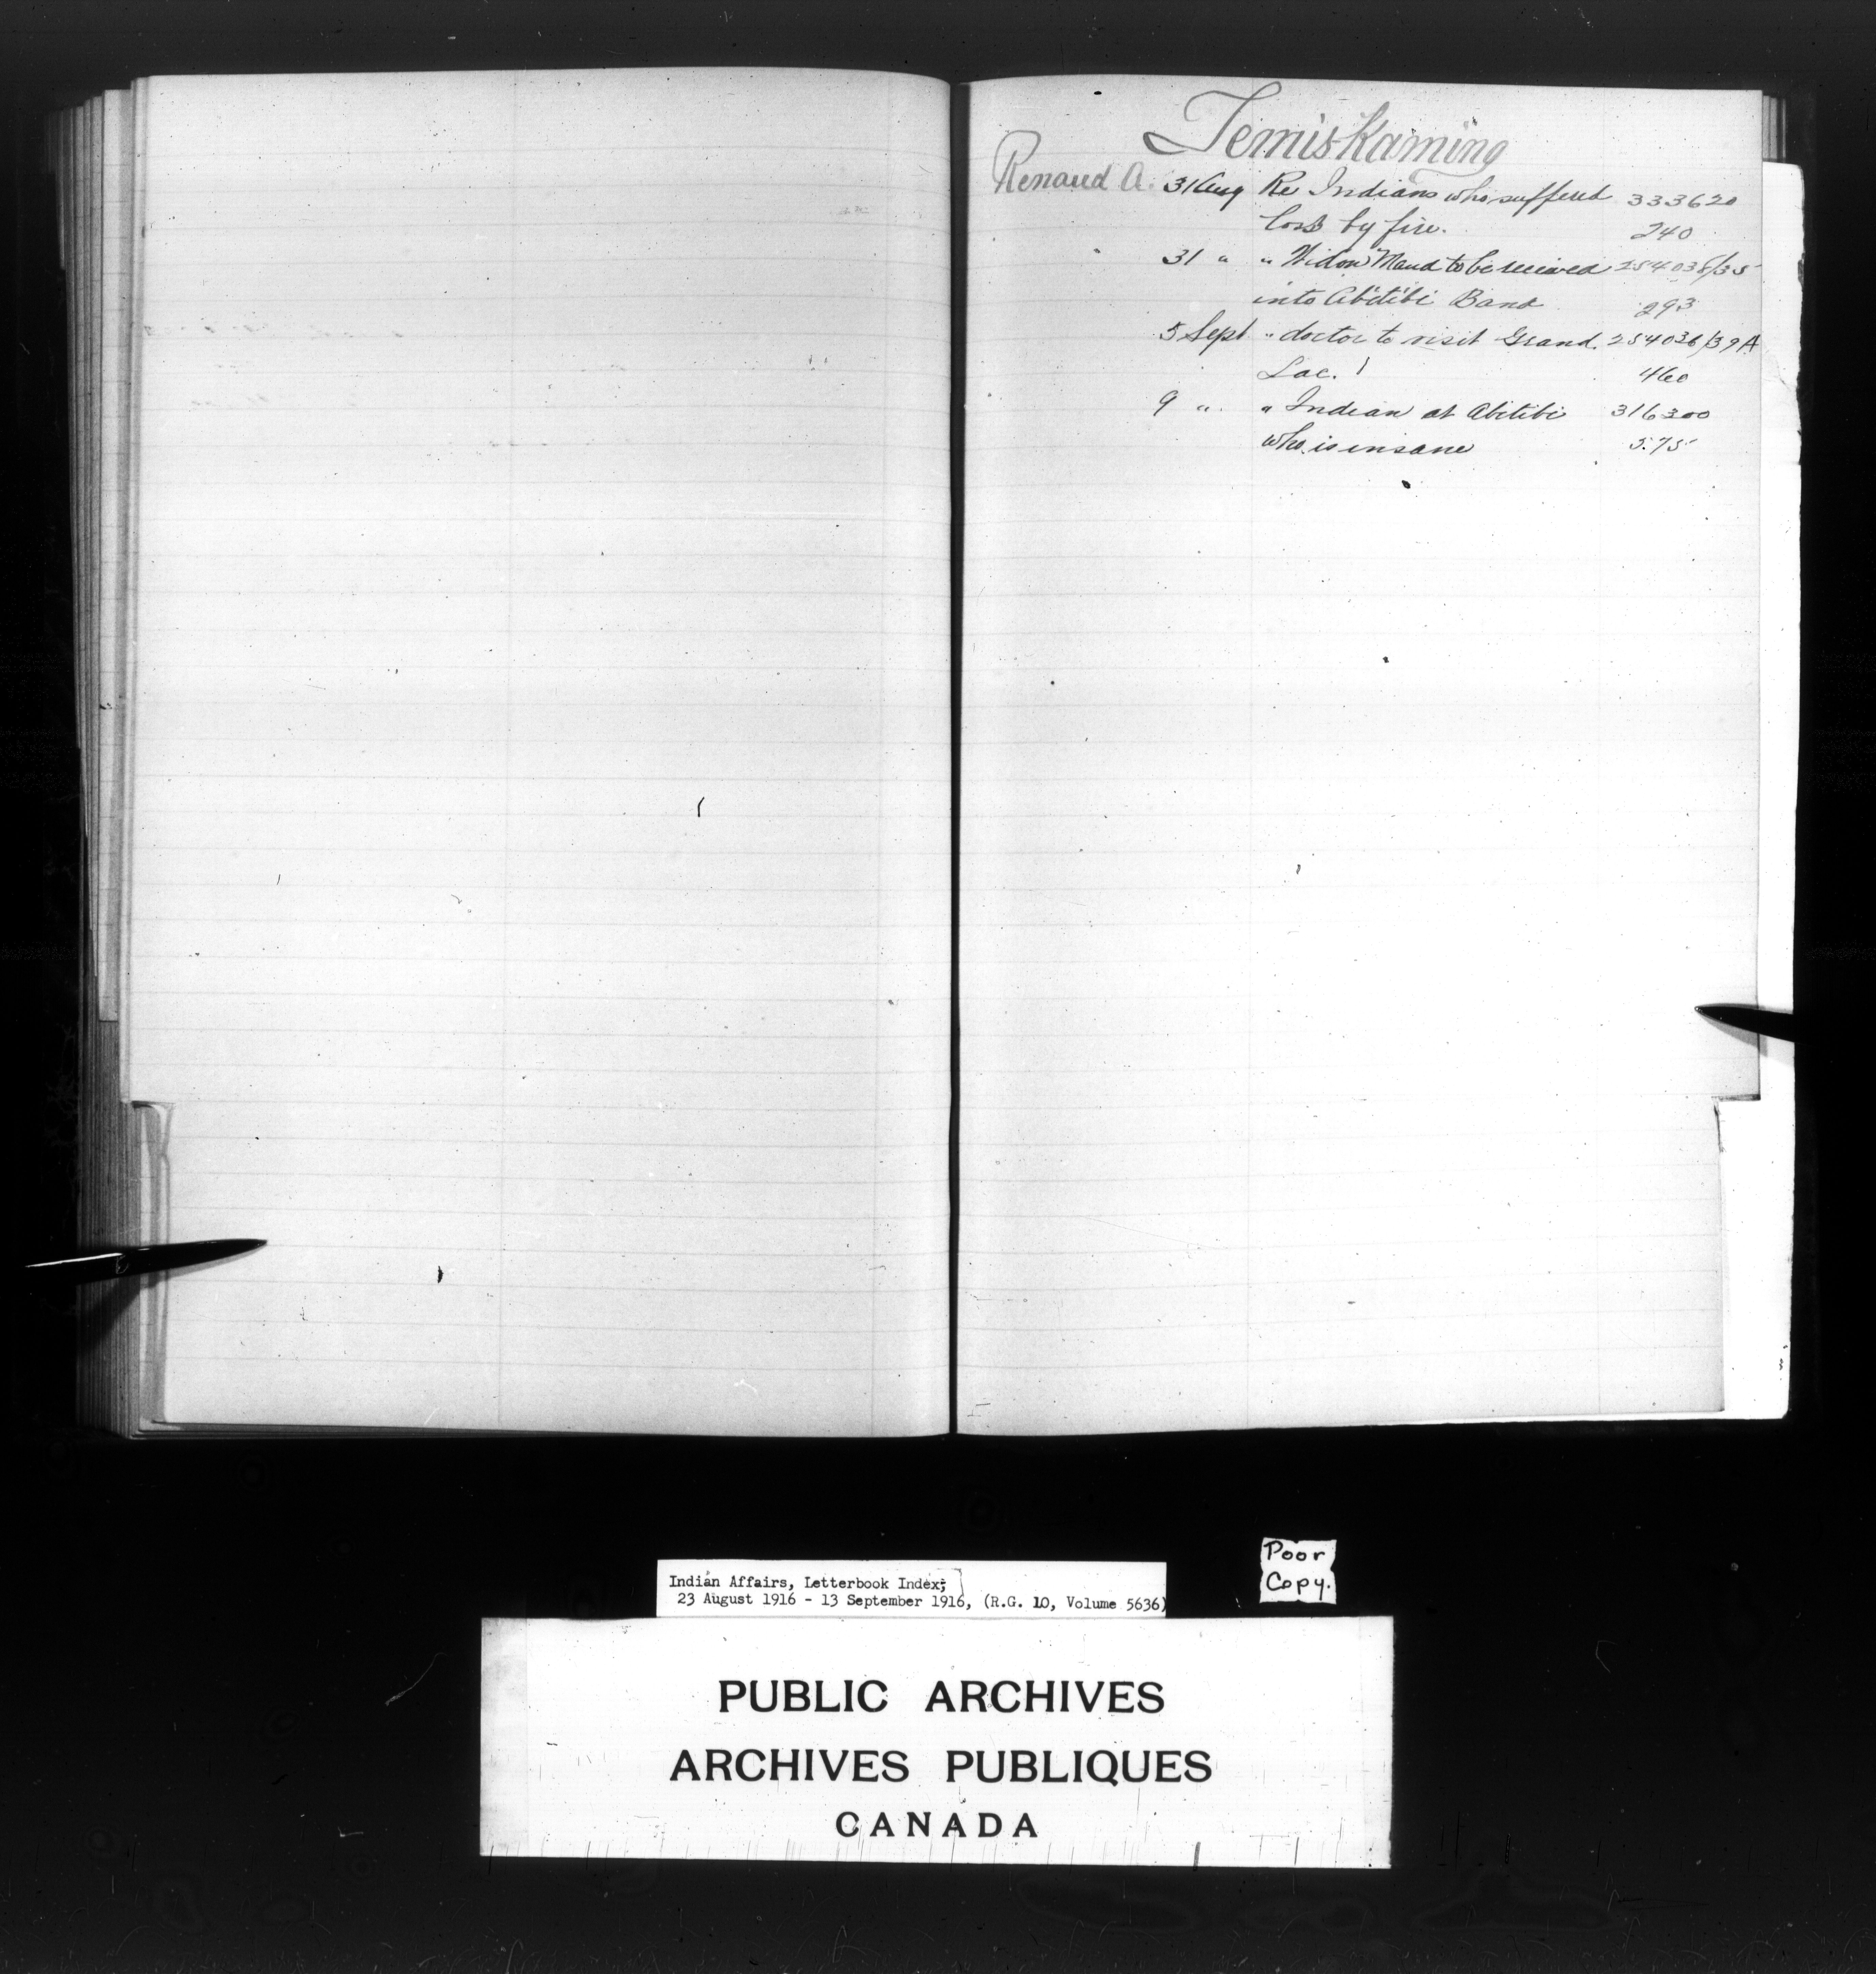 Temiskaming
Renaud A. 31 Aug Re Indians who suffered 333620
loss by fire. 240
31 " " Widow Maud to be received 254038/35
into Abitibi Band 293
5 Sept " doctor to visit Grand 254036/39A
Lac. 460
9 " " Indian at Abitibi 316300
who is insane 575
Poor
Copy.
Indian Affairs, Letterbook Index;
23 August 1916 - 13 September 1916, (R.G. 10, Volume 5636)
PUBLIC ARCHIVES
ARCHIVES PUBLIQUES
CANADA